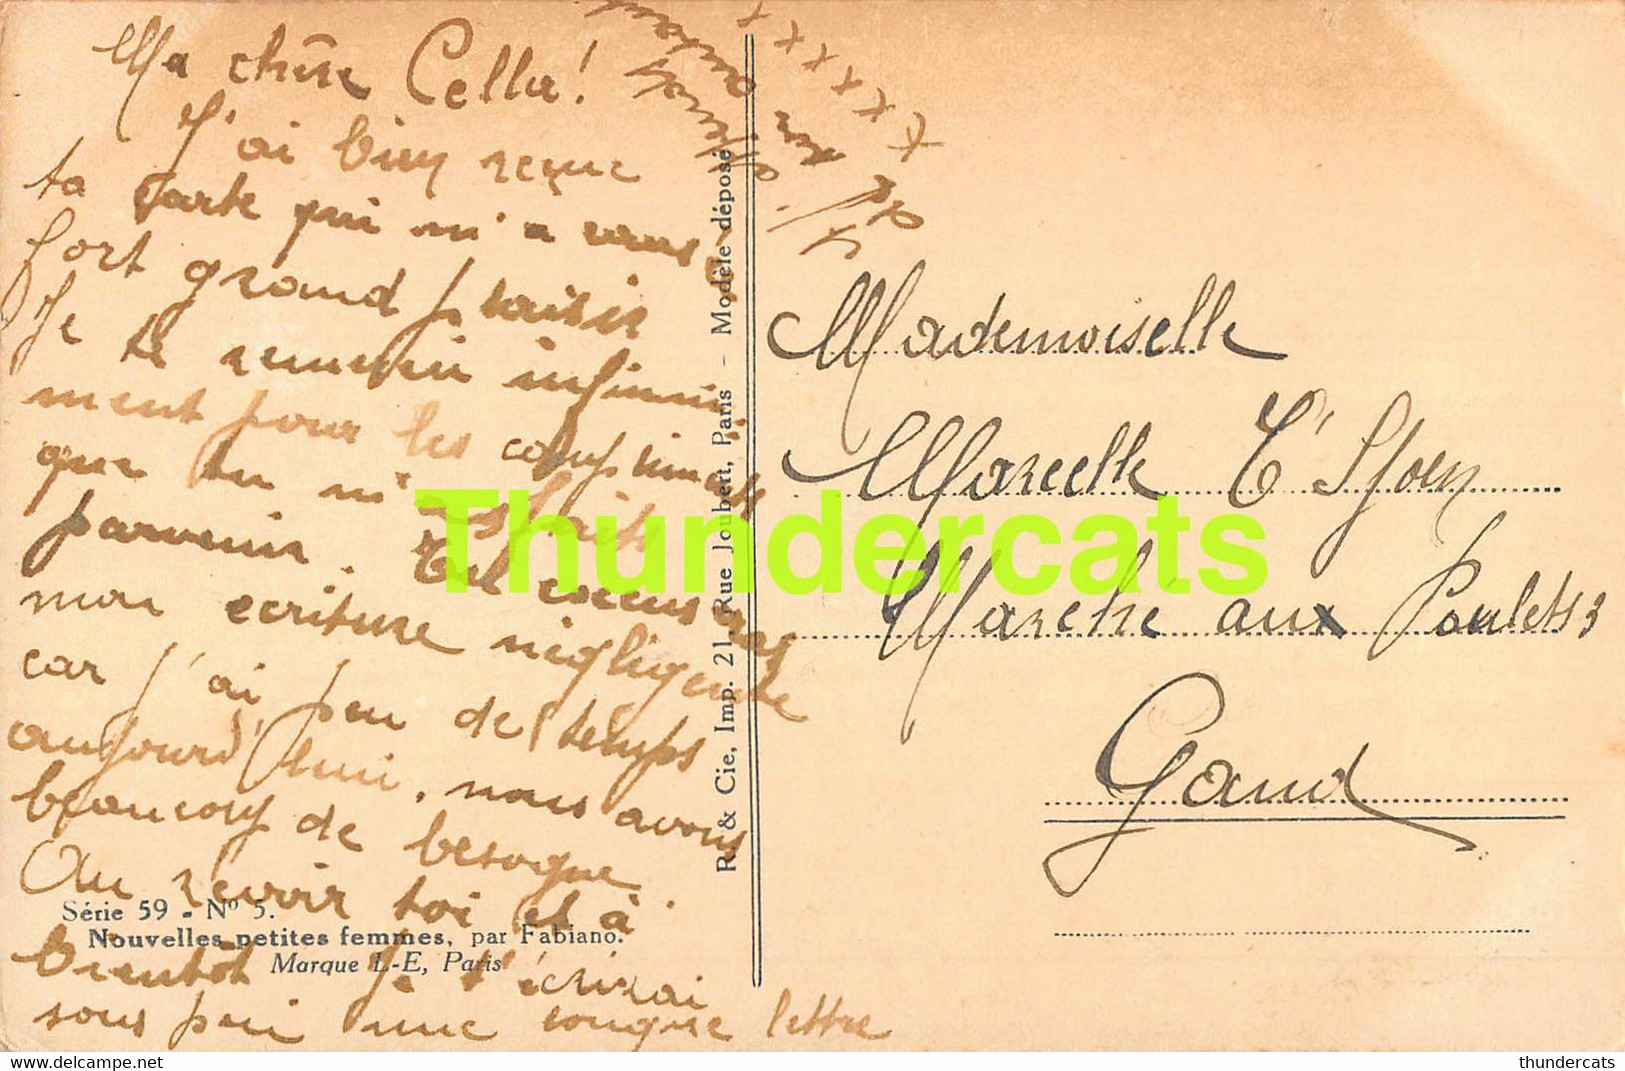 Ma chère Cella!
J'ai bien reçue
ta carte qui m'a
fort grand plaisir
Je te remercie infinni
ment pour les compliments
que tu m'as faits
parvenir. Tu excuseras
mon ecriture négligente
car j'ai peu de temps
aujourd'hui, nous avons
beaucoup de besogne.
Au revoir toi et à
bientôt Je t'écrirai
sous peu une longue lettre
x x x x x x
Série 59 - Nº 5.
Nouvelles petites femmes, par Fabiano.
Marque L-E, Paris
R. & Cie, Imp. 21, Rue Joubert, Paris - Modèle déposé
Mademoiselle
Marcelle T'Sjoen
Marché aux Poulets
Gand
Thundercats
thundercats